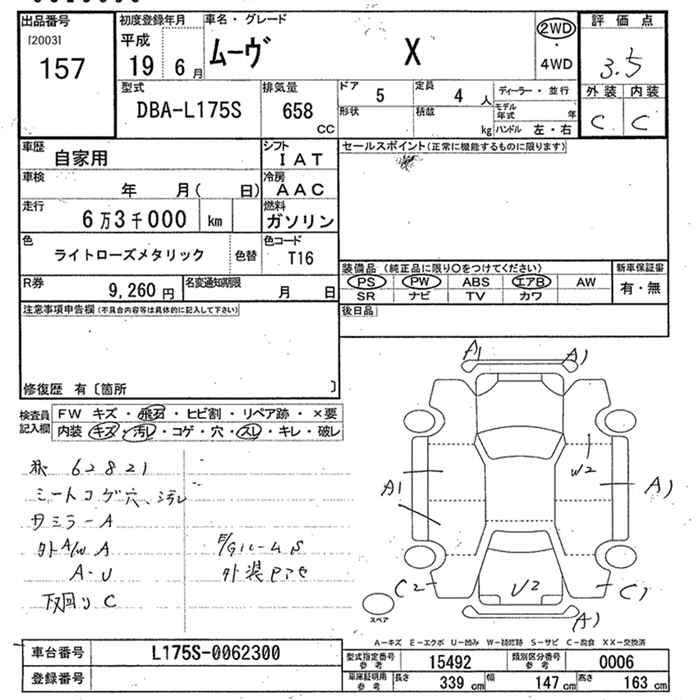 出品番号 初度登録年月 車名・グレード 評価点
[2003] 平成 ムーヴ X 2WD・4WD 3.5
157 19 6月 外装 内装
型式 排気量 ドア 5 定員 4人 ディーラー・並行 C C
DBA-L175S 658 CC 形状 積載 kg モデル年式 年
ハンドル 左・右
車歴 自家用 シフト IAT セールスポイント(正常に機能するものに限ります)
車検 年 月( 日) 冷房 AAC
走行 6万3千000 km 燃料 ガソリン
色 ライトローズメタリック 色替 色コード T16
装備品 (純正品に限り○をつけてください) 新車保証書
R券 9,260円 名変通知期限 月 日 PS PW ABS エアB AW 有・無
SR ナビ TV カワ
注意事項申告欄(不具合内容等は具体的に記入して下さい) 後日品
修復歴 有〔箇所 〕
検査員記入欄 FW キズ・飛石・ヒビ割・リペア跡・×要
内装 キズ・汚レ・コゲ・穴・スレ・キレ・破レ
A1 A1
62821
シートコゲ穴、汚レ W2
A1 A1
ミラーA
外A/W A F/Gルーム S
A-U 外装
下回り C C2 U2 C1
スペア A1
A—キズ E—エクボ U—凹み W—補修跡 S—サビ C—腐食 XX—交換済
車台番号 L175S-0062300 型式指定番号 参考 15492 類別区分番号 参考 0006
登録番号 車庫証明用 参考 長さ 339 cm 幅 147 cm 高さ 163 cm